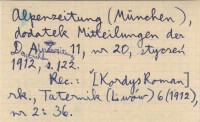 Alpenzeitung (München),
dodatek Mitteilungen der
D. 11, nr 20, styczeń
1912, s. 122.
Rec.: [Kordys Roman]
rk., Taternik (Lwów) 6 (1912),
nr 2: 36.